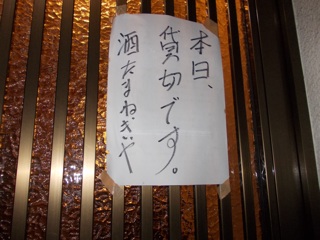 本日、
貸切です。
酒たまねぎや